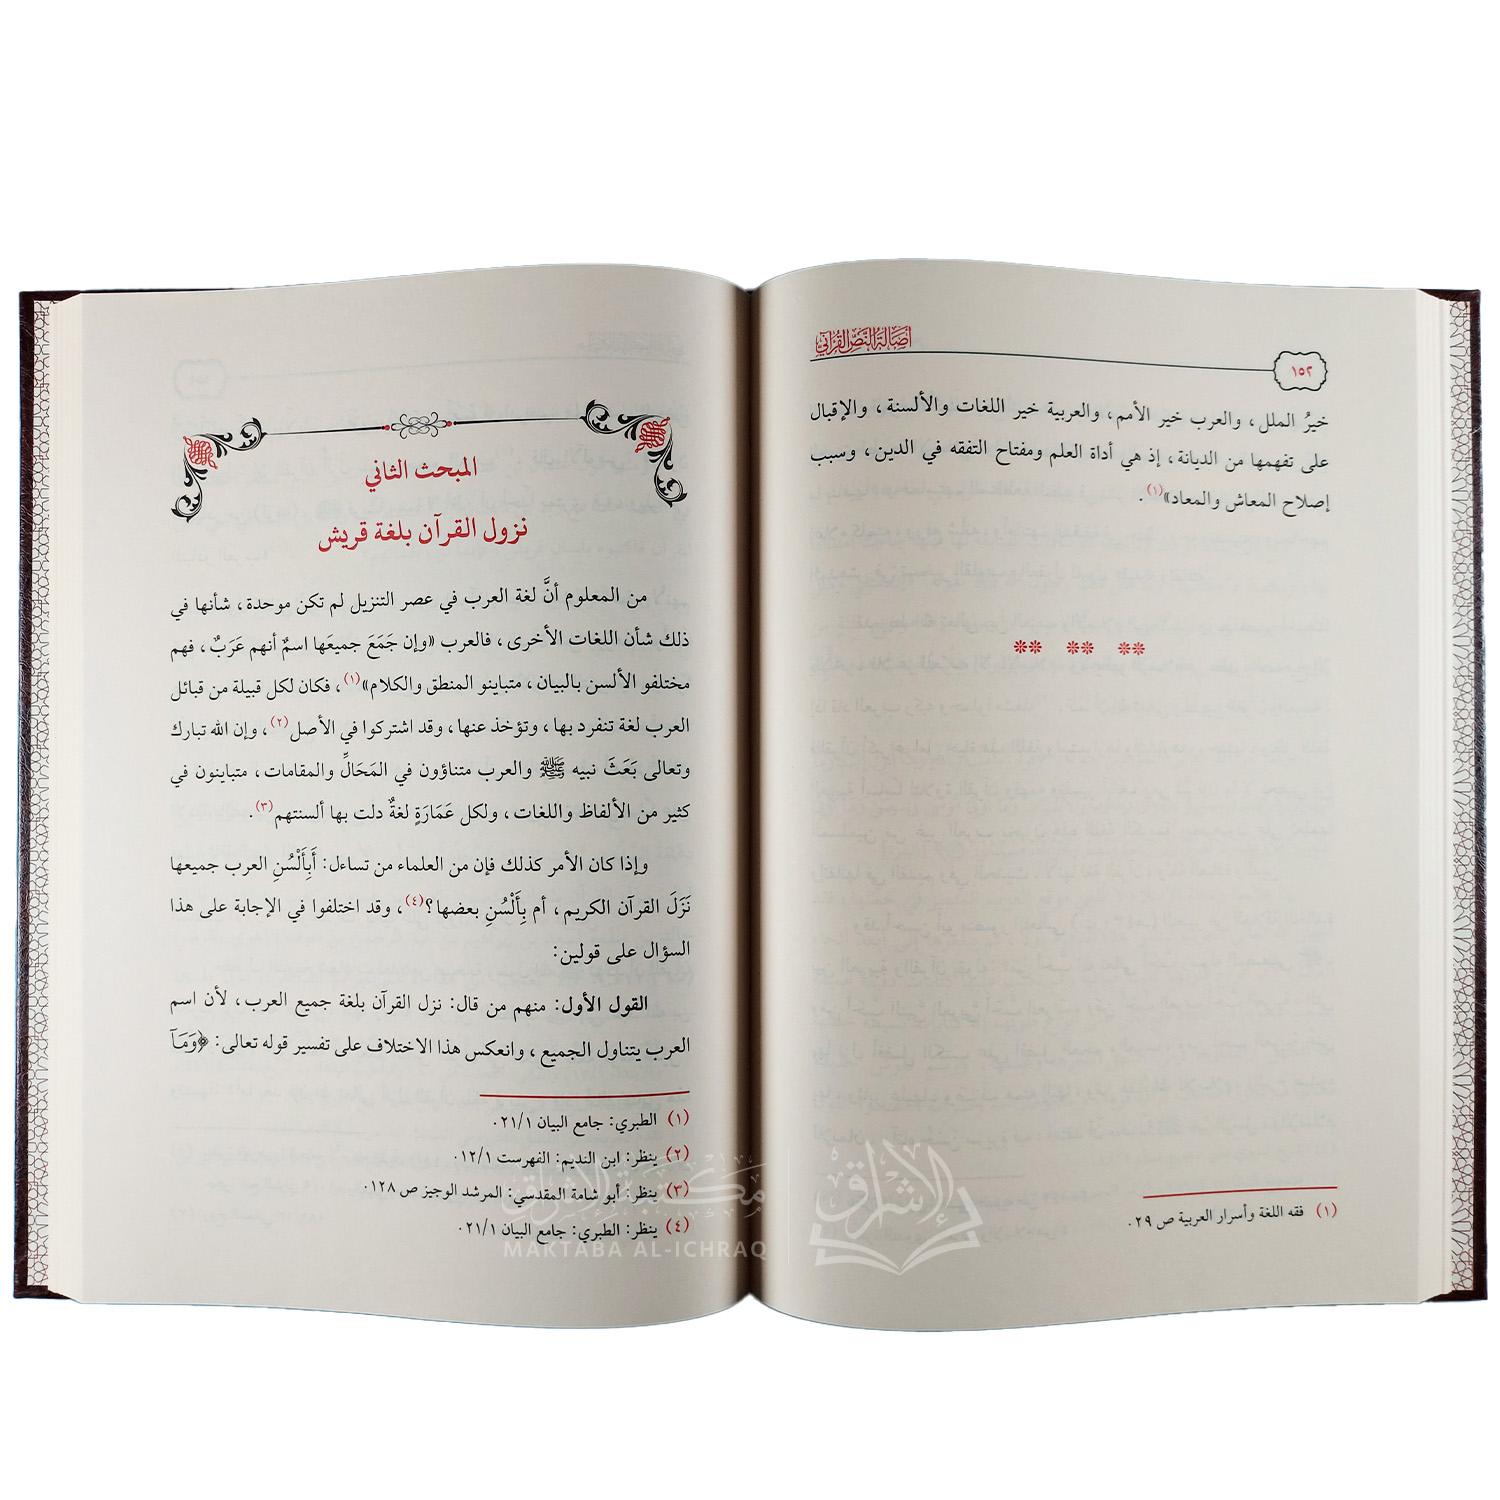 أصالة النص القرآني
١٥٢
خيرُ الملل، والعرب خير الأمم، والعربية خير اللغات والألسنة، والإقبال
على تفهمها من الديانة، إذ هي أداة العلم ومفتاح التفقه في الدين، وسبب
إصلاح المعاش والمعاد»(١).
** ** **
(١) فقه اللغة وأسرار العربية ص ٢٩.
المبحث الثاني
نزول القرآن بلغة قريش
من المعلوم أنَّ لغة العرب في عصر التنزيل لم تكن موحدة، شأنها في
ذلك شأن اللغات الأخرى، فالعرب «وإن جَمَعَ جميعَها اسمٌ أنهم عَرَبٌ، فهم
مختلفو الألسن بالبيان، متباينو المنطق والكلام»(١)، فكان لكل قبيلة من قبائل
العرب لغة تنفرد بها، وتؤخذ عنها، وقد اشتركوا في الأصل(٢)، وإن الله تبارك
وتعالى بَعَثَ نبيه ﷺ والعرب متناؤون في المَحَالِّ والمقامات، متباينون في
كثير من الألفاظ واللغات، ولكل عَمَارَةٍ لغةٌ دلت بها ألسنتهم(٣).
وإذا كان الأمر كذلك فإن من العلماء من تساءل: أَبِأَلْسُنِ العرب جميعها
نَزَلَ القرآن الكريم، أم بِأَلْسُنِ بعضها؟(٤)، وقد اختلفوا في الإجابة على هذا
السؤال على قولين:
القول الأول: منهم من قال: نزل القرآن بلغة جميع العرب، لأن اسم
العرب يتناول الجميع، وانعكس هذا الاختلاف على تفسير قوله تعالى: ﴿وَمَآ
(١) الطبري: جامع البيان ٢١/١.
(٢) ينظر: ابن النديم: الفهرست ١٢/١.
(٣) ينظر: أبو شامة المقدسي: المرشد الوجيز ص ١٢٨.
(٤) ينظر: الطبري: جامع البيان ٢١/١.
مكتبة الإشراق
MAKTABA AL-ICHRAQ
الإشراق